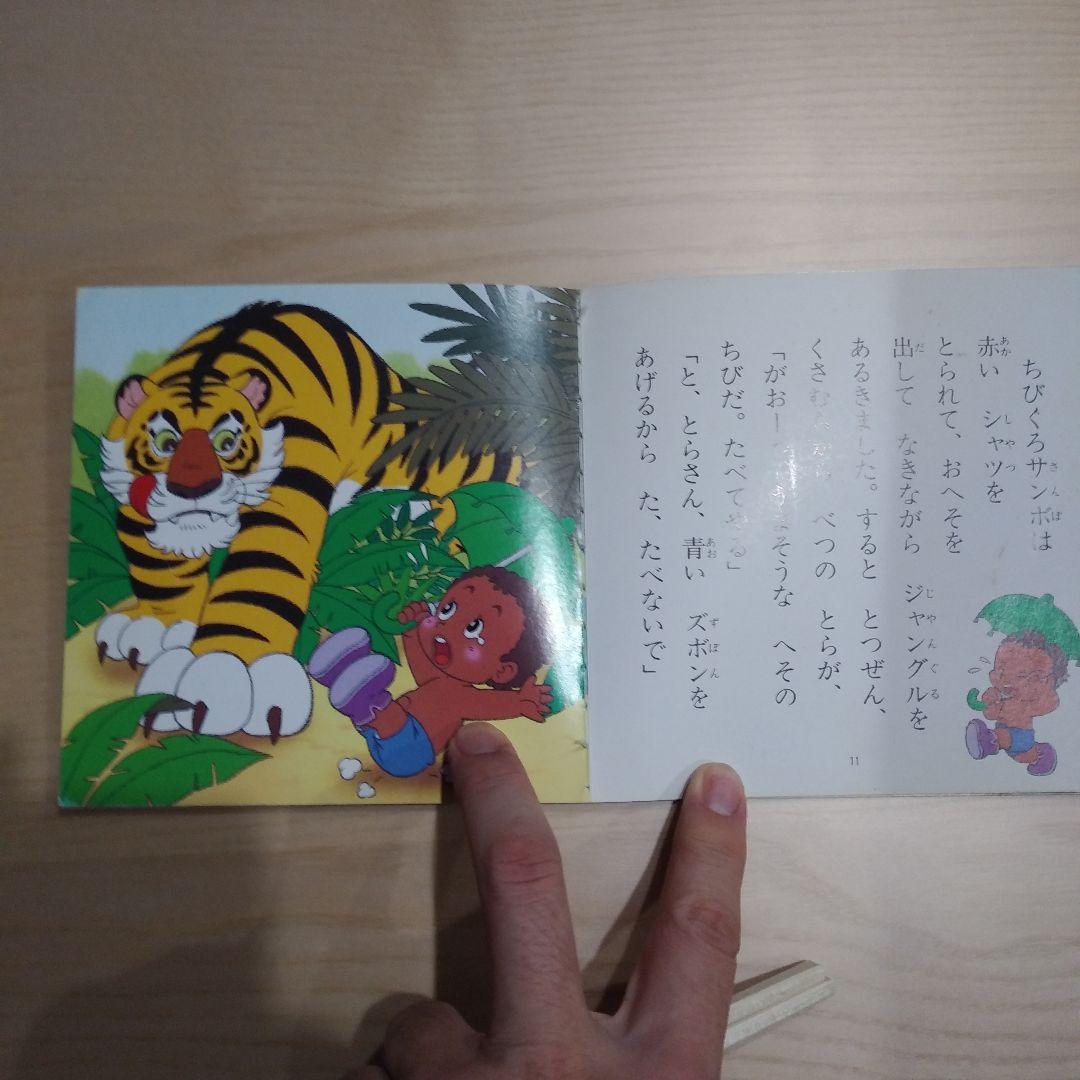 さんぼ
ちびくろサンボは
あか しゃつ
赤い シャツを
とられて、おへそを
だ じゃんぐる
出して なきながら ジャングルを
あるきました。すると とつぜん、
くさむ べつの とらが、
「がおー そうな へその
ちびだ。たべて る」
あお ずぼん
「と、とらさん、青い ズボンを
あげるから た、たべないで」
11